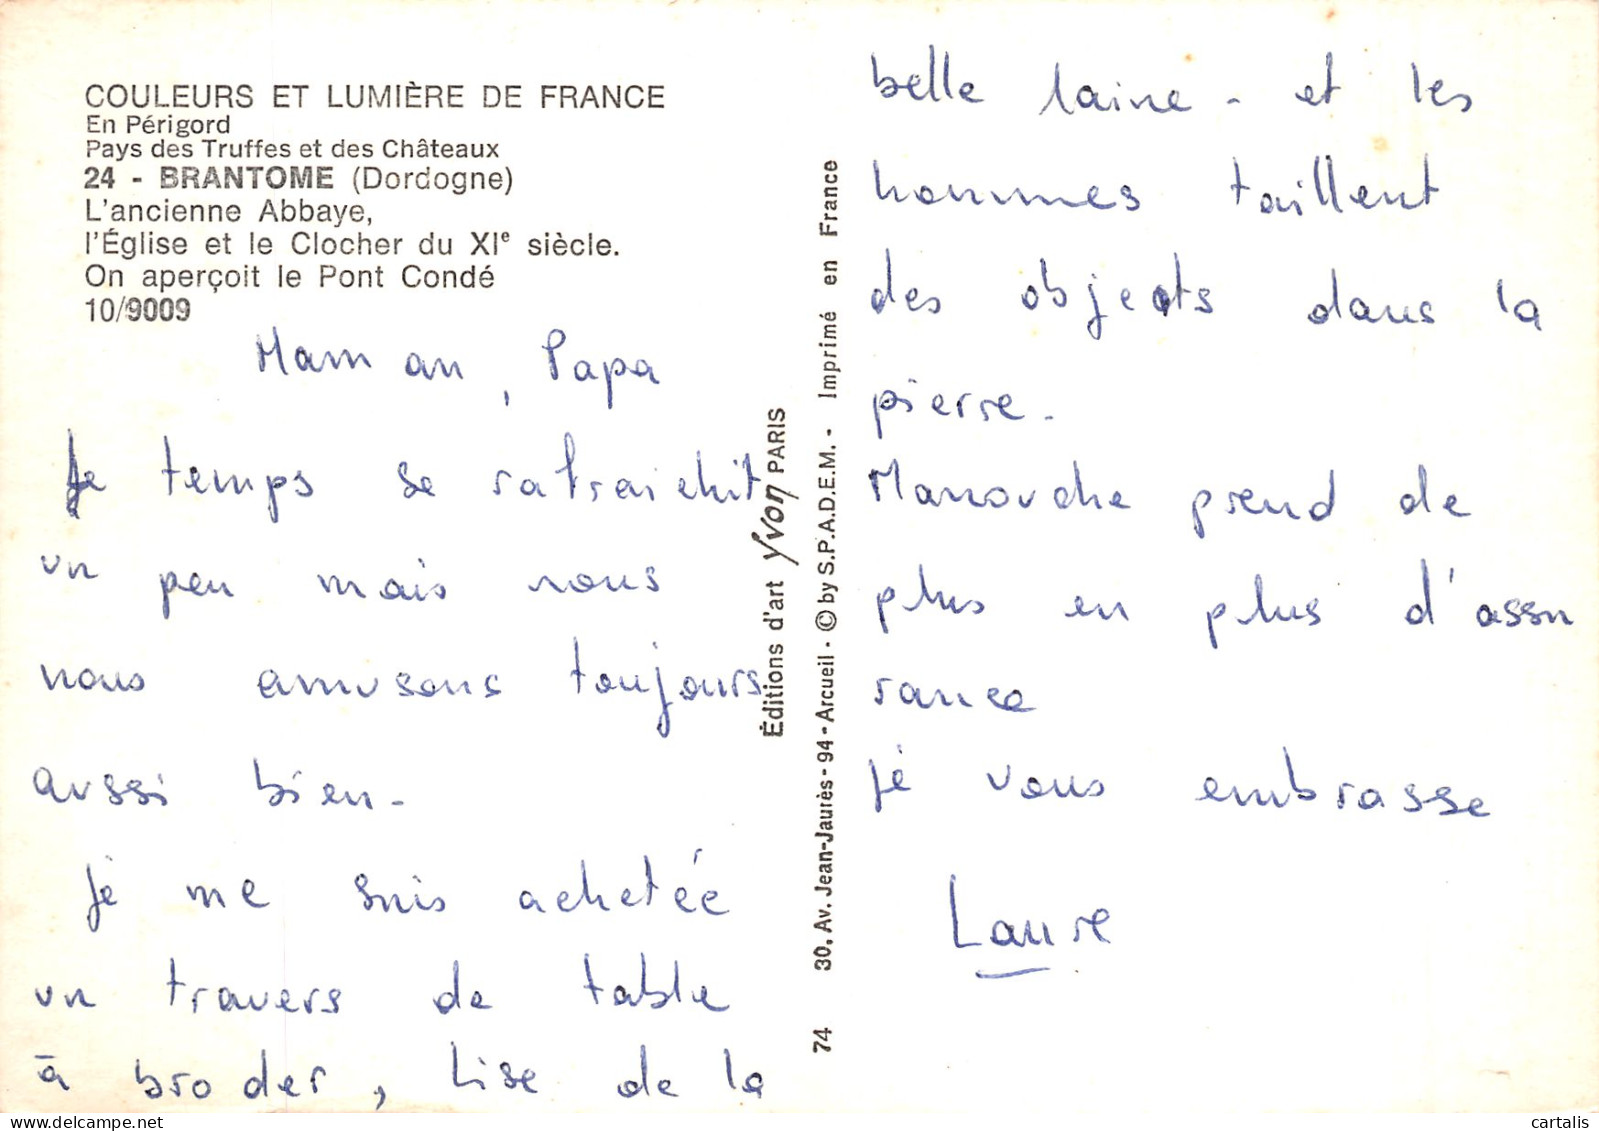 COULEURS ET LUMIÈRE DE FRANCE
En Périgord
Pays des Truffes et des Châteaux
24 - BRANTOME (Dordogne)
L'ancienne Abbaye,
l'Église et le Clocher du XIe siècle.
On aperçoit le Pont Condé
10/9009
Maman, Papa
Le temps se rafraichit
un peu mais nous
nous amusons toujours
aussi bien -
Je me suis achetée
un travers de table
à broder, Lise de la
Éditions d'art Yvon PARIS
30, Av. Jean-Jaurès - 94 - Arcueil - © by S.P.A.D.E.M. - Imprimé en France
74
belle laine - et les
hommes taillent
des objects dans la
pierre -
Manouche prend de
plus en plus d'assu
rance
Je vous embrasse
Laure
cartalis